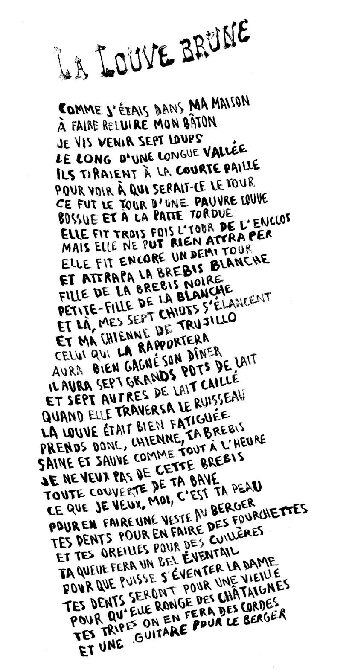 LA LOUVE BRUNE
COMME J'ÉTAIS DANS MA MAISON
À FAIRE RELUIRE MON BÂTON
JE VIS VENIR SEPT LOUPS
LE LONG D'UNE LONGUE VALLÉE
ILS TIRAIENT À LA COURTE PAILLE
POUR VOIR À QUI SERAIT-CE LE TOUR
CE FUT LE TOUR D'UNE PAUVRE LOUVE
BOSSUE ET À LA PATTE TORDUE
ELLE FIT TROIS FOIS L'TOUR DE L'ENCLOS
MAIS ELLE NE PUT RIEN ATTRAPER
ELLE FIT ENCORE UN DEMI TOUR
ET ATTRAPA LA BREBIS BLANCHE
FILLE DE LA BREBIS NOIRE
PETITE-FILLE DE LA BLANCHE
ET LÀ, MES SEPT CHIOTS S'ÉLANCENT
ET MA CHIENNE DE TRUJILLO
CELUI QUI LA RAPPORTERA
AURA BIEN GAGNÉ SON DÎNER
IL AURA SEPT GRANDS POTS DE LAIT
ET SEPT AUTRES DE LAIT CAILLÉ
QUAND ELLE TRAVERSA LE RUISSEAU
LA LOUVE ÉTAIT BIEN FATIGUÉE
PRENDS DONC, CHIENNE, TA BREBIS
SAINE ET SAUVE COMME TOUT À L'HEURE
JE NE VEUX PAS DE CETTE BREBIS
TOUTE COUVERTE DE TA BAVE
CE QUE JE VEUX, MOI, C'EST TA PEAU
POUR EN FAIRE UNE VESTE AU BERGER
TES DENTS POUR EN FAIRE DES FOURCHETTES
ET TES OREILLES POUR DES CUILLÈRES
TA QUEUE FERA UN BEL ÉVENTAIL
POUR QUE PUISSE S'ÉVENTER LA DAME
TES DENTS SERONT POUR UNE VIEILLE
POUR QU'ELLE RONGE DES CHÂTAIGNES
TES TRIPES ON EN FERA DES CORDES
ET UNE GUITARE POUR LE BERGER